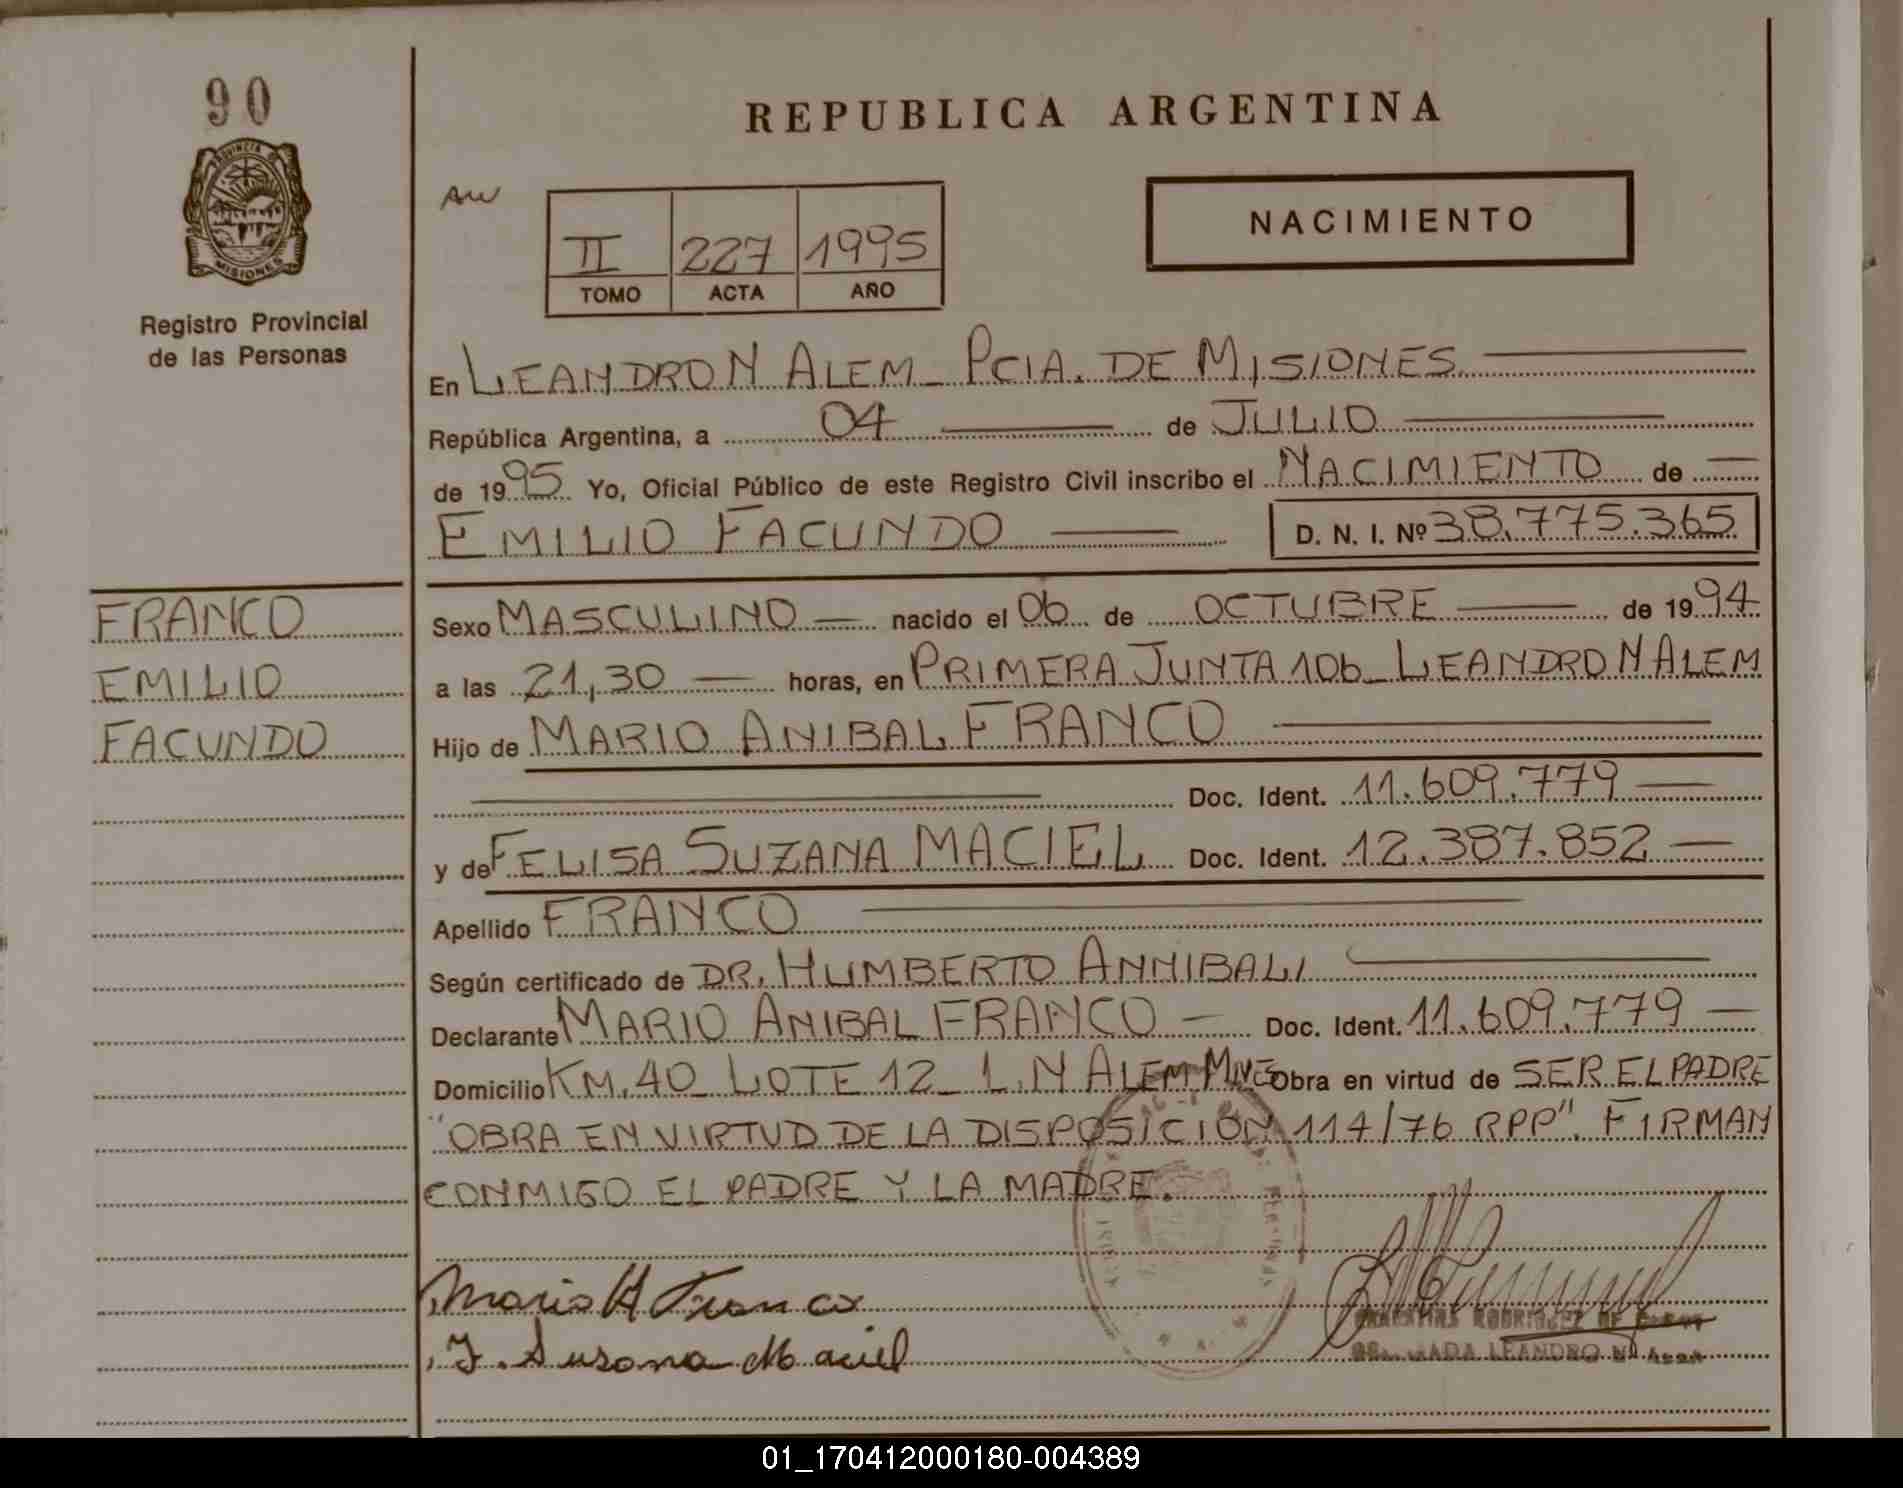 90
PROVINCIA DE
MISIONES
Registro Provincial
de las Personas
FRANCO
EMILIO
FACUNDO
REPUBLICA ARGENTINA
AW
II 227 1995
TOMO ACTA AÑO
NACIMIENTO
En LEANDRO N ALEM - PCIA. DE MISIONES
República Argentina, a 04 de JULIO
de 1995 Yo, Oficial Público de este Registro Civil inscribo el NACIMIENTO de
EMILIO FACUNDO D. N. I. Nº 38.775.365
Sexo MASCULINO nacido el 06 de OCTUBRE de 1994
a las 21,30 horas, en PRIMERA JUNTA 106 - LEANDRO N ALEM
Hijo de MARIO ANIBAL FRANCO
Doc. Ident. 11.609.779
y de FELISA SUZANA MACIEL Doc. Ident. 12.387.852
Apellido FRANCO
Según certificado de DR. HUMBERTO ANNIBALI
Declarante MARIO ANIBAL FRANCO Doc. Ident. 11.609.779
Domicilio KM. 40 - LOTE 12 - L. N ALEM Mnes Obra en virtud de SER EL PADRE
"OBRA EN VIRTUD DE LA DISPOSICION 114/76 RPP". FIRMAN
CONMIGO EL PADRE Y LA MADRE.
Mario A Franco
F. Susana Maciel
RODRIGUEZ DE
LEANDRO N.
01_170412000180-004389